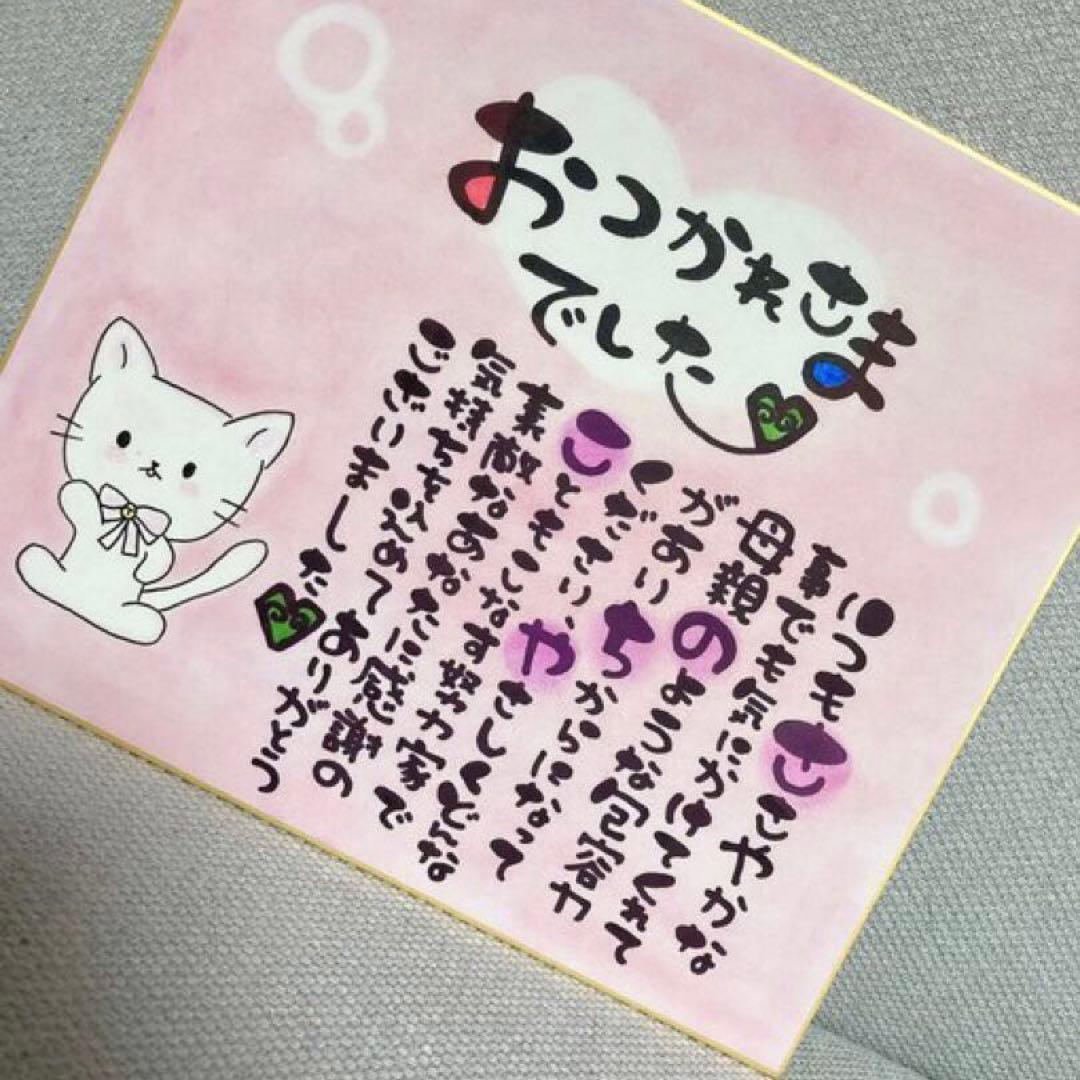 おつかれさま
でした
いつもささやかな
事でも気にかけてくれて
母親のような包容力
があり ちからになって
くださり、やさしくどんな
こともこなす努力家で
素敵なあなたに感謝の
気持ちを込めて ありがとう
ございました